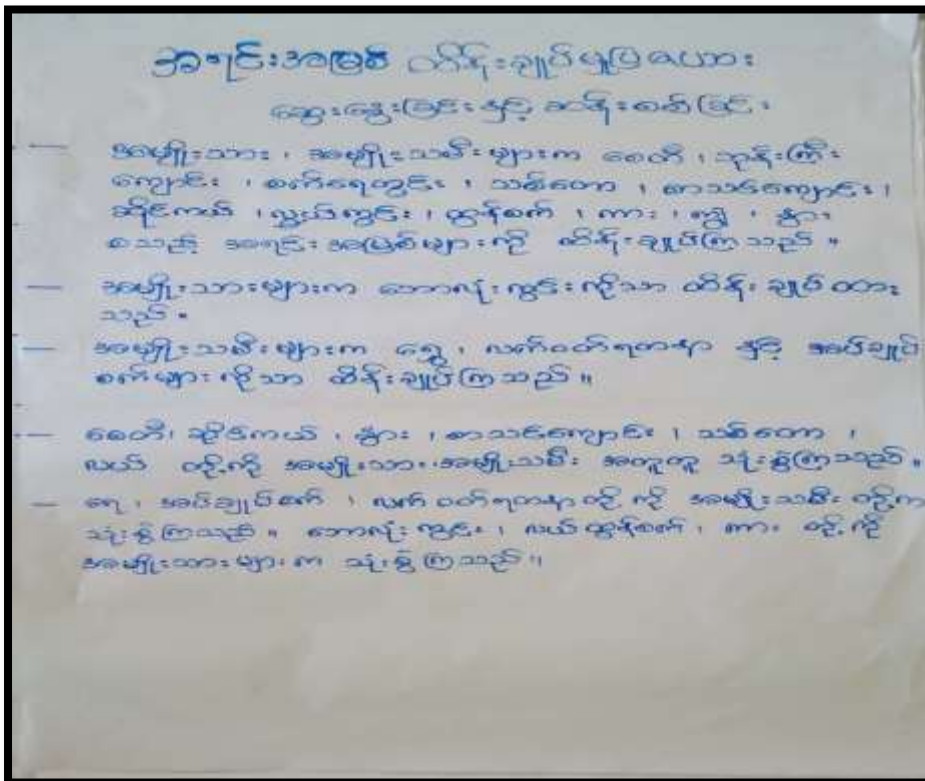 အရင်းအမြစ် ထိန်းချုပ်မှုပြဇယား
ဆွေးနွေးခြင်းနှင့် ဆန်းစစ်ခြင်း
— အမျိုးသား၊ အမျိုးသမီးများက စေတီ၊ ဘုန်းကြီး
ကျောင်း၊ စက်ရေတွင်း၊ သစ်တော၊ စာသင်ကျောင်း၊
ဆိုင်ကယ်၊ လယ်ကွင်း၊ ထွန်စက်၊ ကား၊ ကျွဲ၊ နွား
စသည့် အရင်းအမြစ်များကို ထိန်းချုပ်ကြသည်။
— အမျိုးသားများက ဘောလုံးကွင်းကိုသာ ထိန်းချုပ်ထား
သည်။
— အမျိုးသမီးများက ရွှေ၊ လက်ဝတ်ရတနာ နှင့် အပ်ချုပ်
စက်များကိုသာ ထိန်းချုပ်ကြသည်။
— စေတီ၊ ဆိုင်ကယ်၊ နွား၊ စာသင်ကျောင်း၊ သစ်တော၊
လယ် တို့ကို အမျိုးသား၊ အမျိုးသမီး အတူတူ သုံးစွဲကြသည်။
— ရေ၊ အပ်ချုပ်စက်၊ လက်ဝတ်ရတနာတို့ကို အမျိုးသမီးတို့က
သုံးစွဲကြသည်။ ဘောလုံးကွင်း၊ လယ်ထွန်စက်၊ ကား တို့ကို
အမျိုးသားများက သုံးစွဲကြသည်။